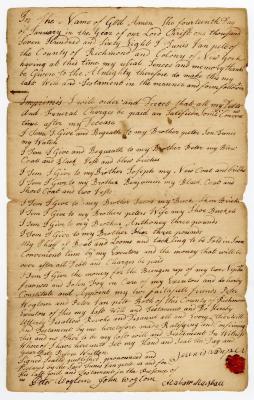 In The Name of God Amen The fourteenth Day
of January in the Year of our Lord Christ one thousand
Seven Hundred and Sixty Eight I Junis Van pelt of the
County of Richmond and Colony of New York
having at this time my usial Sences and memory thanks
be Given to the Almighty therefore do make this my
last Will and Testament in the manner and form following
Imprimis I will order and Direct that all my Debts
And Funeral Charges be paid in Conveni
time after my Decease
I Tem I Give and Bequeath to my Brother peter Son James
my Watch
I Tem I Give and Bequeath to my Brother Peter my Blew
Coat and Black Vest and blew britches
I Tem I Give to my Brother Joseph my New Coat and britches
I Tem I Give to my Brother Benjamin my Black Coat and
Short Coat and two Vests
I Tem I Give to my Brother my Buck Skin Britch
I Tem I Give to my Brother peters Wife my Shoe Buckels
I Tem I Give to my Brother Anthoney three pounds
I Tem I Give to my Brother John three pounds
My Shop & Boat and Looms and Tackling to be Sold in Som
Convenient time by my Executors and the money that will be
over after all Debts and Charges be paid
I Tem I Give the money for the Bringin up of my two
and I
Constitute and Appoint my faithfull friends Peter
Woglom and Peter Van pelt Both of this County of Richmon
Executors of this my Last Will and Testament and Do hereby
Utterly Revoke and Disannul all and Every other Will
and Testament by me heretofore made Ratifying and confirming
this and no other to be my last will and Testament In Witness
Whereof I have hereunto Set my Hand and Seal the Day and
Year Above Written
Signed Sealed published pronounced and
Declared by the Said Junis Van pelt as
last Will and Testament in the presence of
Peter Woglom John Woglom